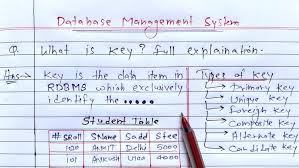 Database Management System
Q. What is key? full explaination.
Ans→ Key is the data item in
RDBMS which exclusively
identify the •••••
Student Table
# SRoll SName Sadd Sfees
100 AMIT Delhi 5000
101 ANKUSH 4000
Types of key
→ Primary key
→ Unique key
→ Foreign key
→ Composite key
→ Alternate key
→ Candidate key